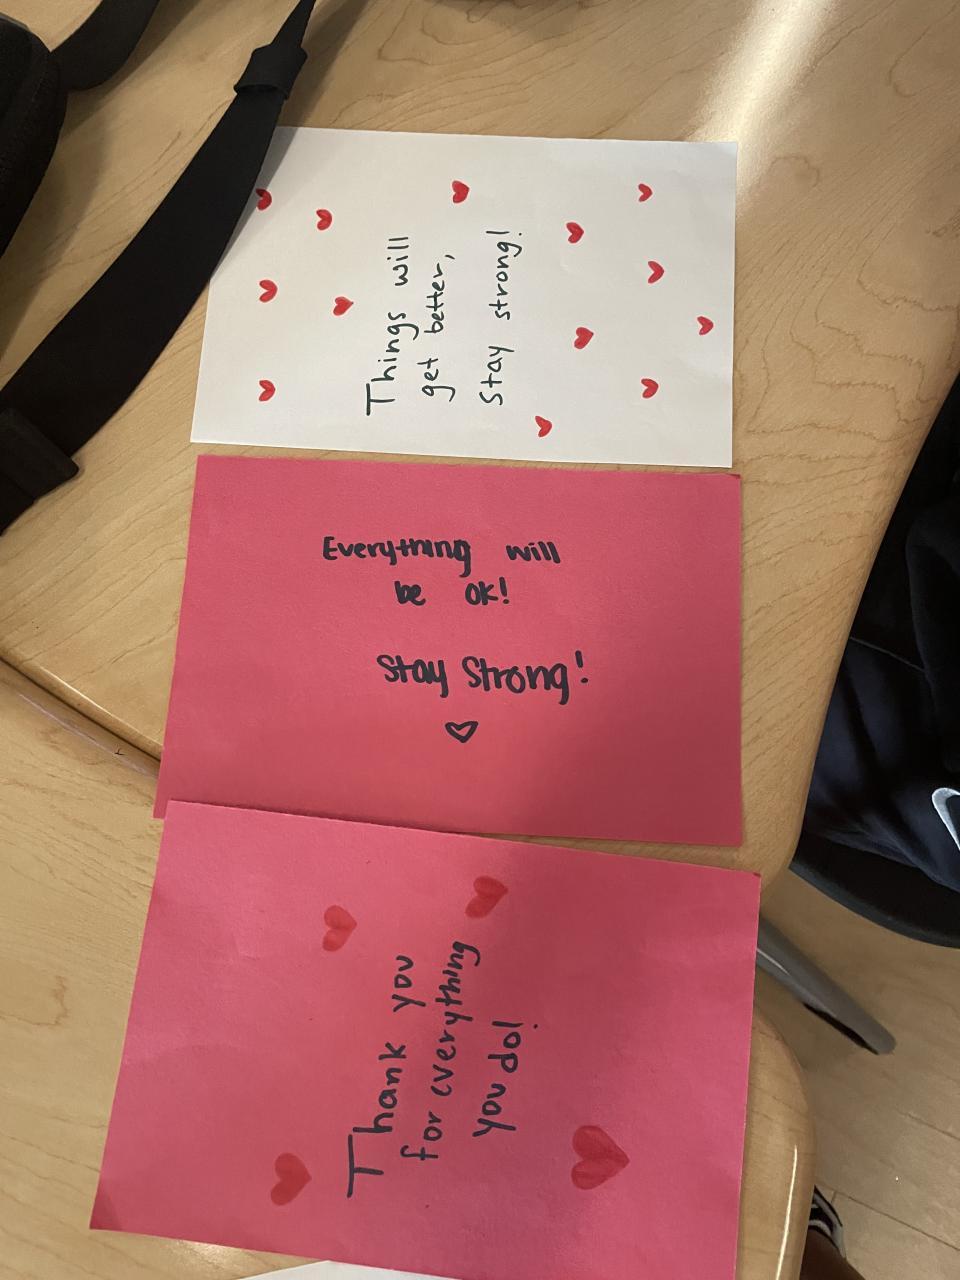 Things will
get better,
Stay strong!
Everything will
be ok!
Stay Strong!
Thank you
for everything
you do!